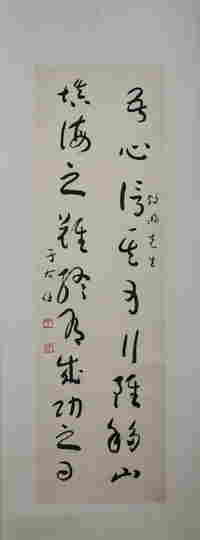 吾心信其可行雖移山
填海之難終有成功之日
先生
于右任